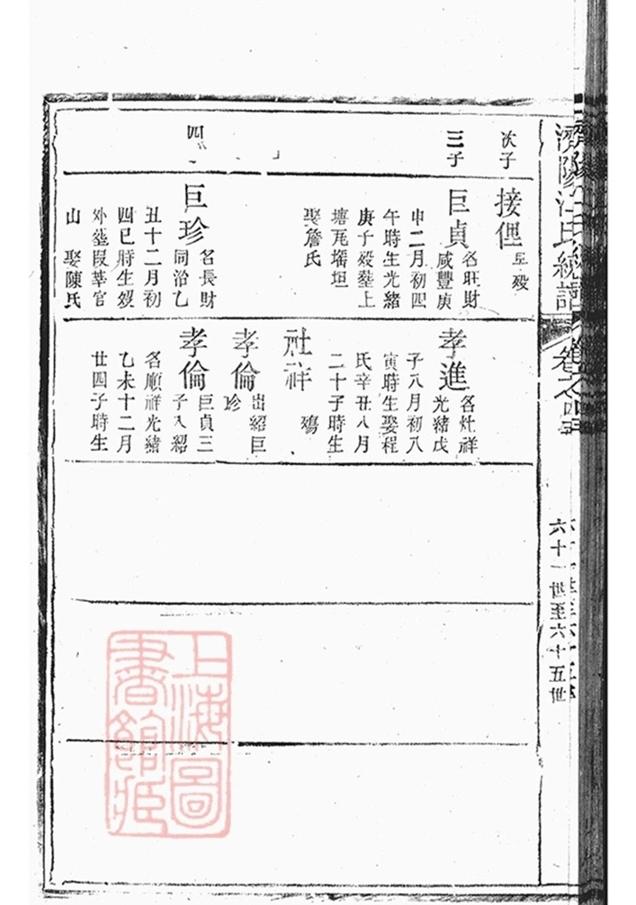 濟陽江氏統譜
卷之
六十一世至六十五世
次子
接俚 早歿
三子
巨貞 名旺財
咸豐庚
申二月初四
午時生光緒
庚子歿塟上
塘瓦壻垣
娶詹氏
四
巨珍 名長財
同治乙
丑十二月初
四巳時生歿
外塟叚莘官
山 娶陳氏
孝進 名灶祥
光緒戊
子八月初八
寅時生娶程
氏辛丑八月
二十子時生
灶祥 殤
孝倫 出紹巨
珍
孝倫 巨貞三
子入紹
名順祥光緒
乙未十二月
廿四子時生
上海圖
書館藏